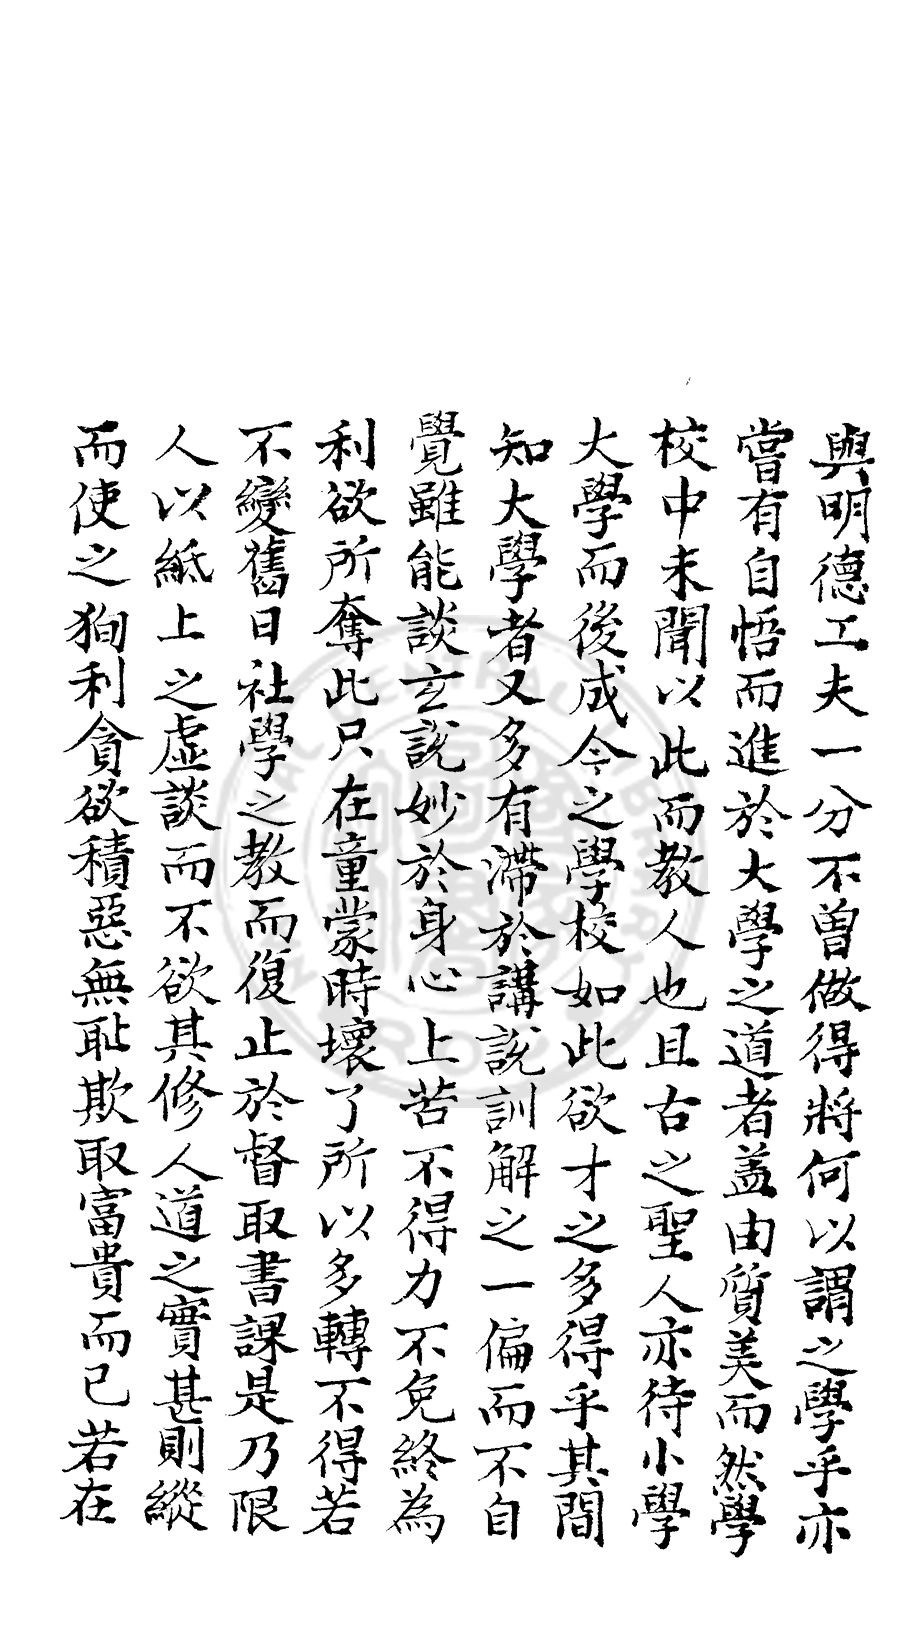 與明德工夫一分不曾做得將何以謂之學乎亦
嘗有自悟而進於大學之道者葢由質美而然學
校中未聞以此而教人也且古之聖人亦待小學
大學而後成今之學校如此欲才之多得乎其間
知大學者又多有滯於講說訓解之一偏而不自
覺雖能談玄說妙於身心上苦不得力不免終為
利欲所奪此只在童蒙時壞了所以多轉不得若
不變舊日社學之教而復止於督取書課是乃限
人以紙上之虛談而不欲其修人道之實甚則縱
而使之狥利貪欲積惡無恥欺取富貴而已若在